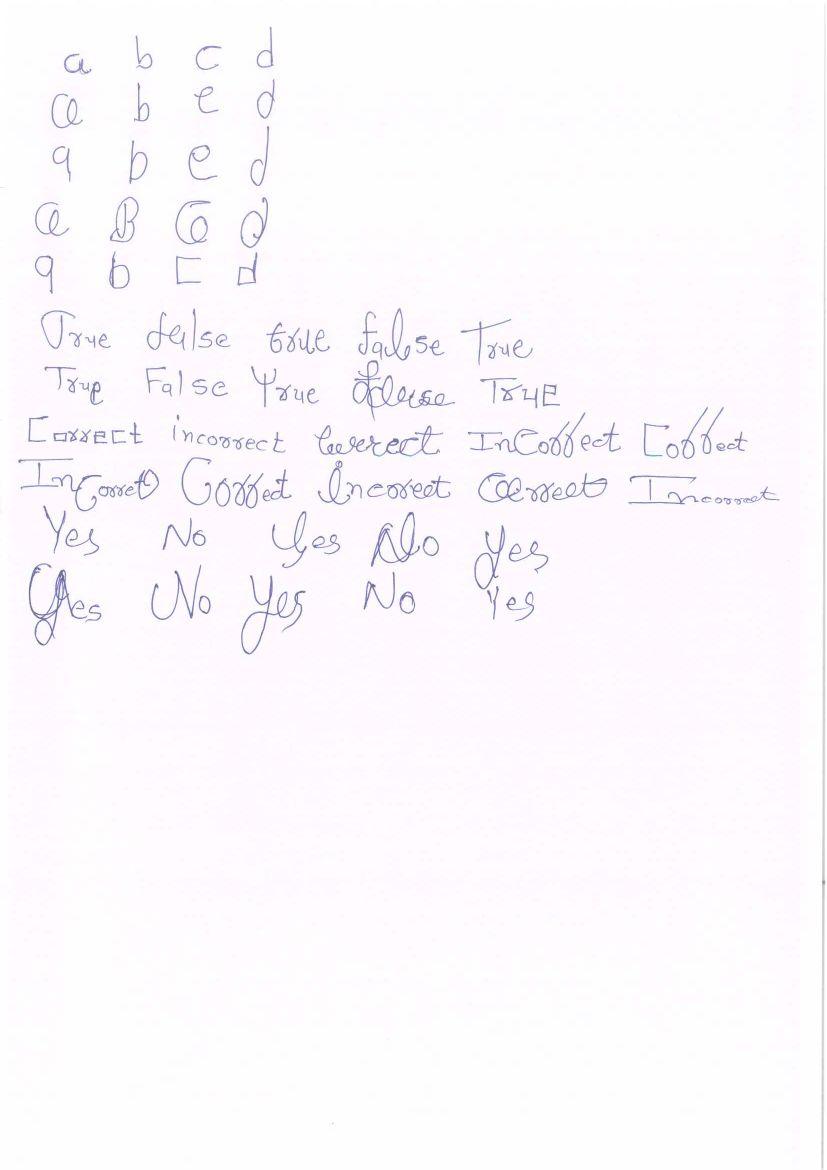 a b c d
a b c d
a b c d
a B C d
a b c d
True false true false True
True False True false TRUE
Correct incorrect Correct InCorrect Correct
InCorrect Correct Incorrect Correct Incorrect
Yes No Yes No Yes
Yes No Yes No Yes